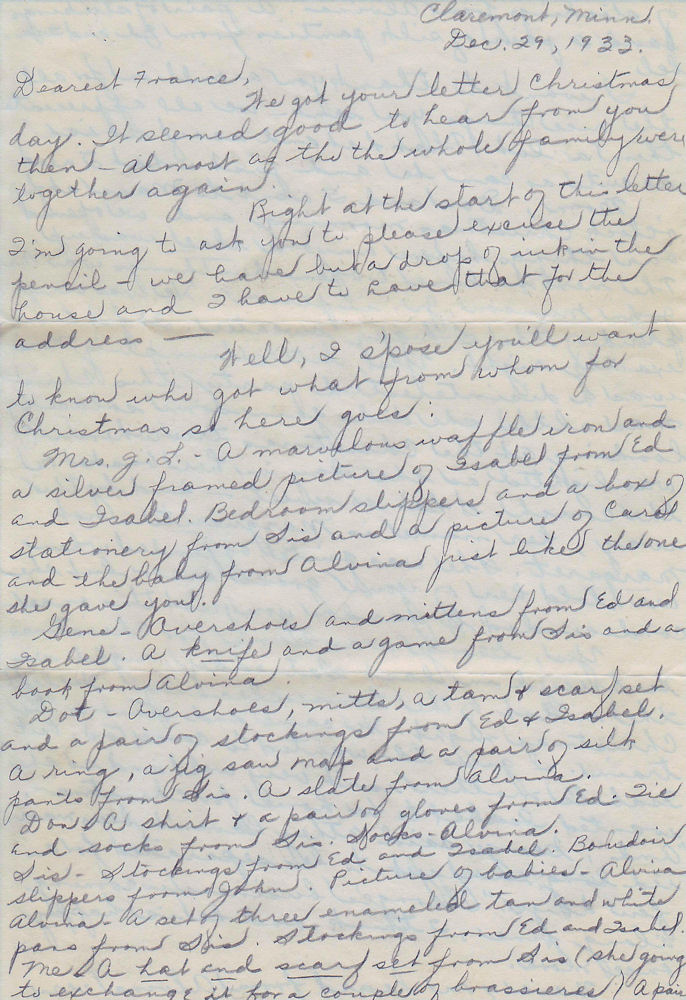 Claremont, Minn.
Dec. 29, 1933.
Dearest France,
We got your letter Christmas
day. It seemed good to hear from you
then - almost as tho the whole family were
together again.
Right at the start of this letter
I'm going to ask you to please excuse the
pencil - we have but a drop of ink in the
house and I have to save that for the
address —
Well, I s'pose you'll want
to know who got what from whom for
Christmas so here goes:
Mrs. J. L. - A marvalous waffle iron and
a silver framed picture of Isabel from Ed
and Isabel. Bedroom slippers and a box of
stationery from Sis and a picture of Carol
and the baby from Alvina just like the one
she gave you.
Gene - Overshoes and mittens from Ed and
Isabel. A knife and a game from Sis and a
book from Alvina.
Dot - Overshoes, mitts, a tam & scarf set
and a pair of stockings from Ed & Isabel.
A ring, a jig saw map and a pair of silk
pants from Sis. A slate from Alvina.
Don - A shirt & a pair of gloves from Ed. Tie
and socks from Sis. Socks - Alvina.
Sis - Stockings from Ed and Isabel. Boudoir
slippers from John. Picture of babies - Alvina
Alvina - A set of three enameled tan and white
pans from Sis. Stockings from Ed and Isabel.
Me - A hat and scarf set from Sis (she going
to exchange it for a couple of brassieres) A pair